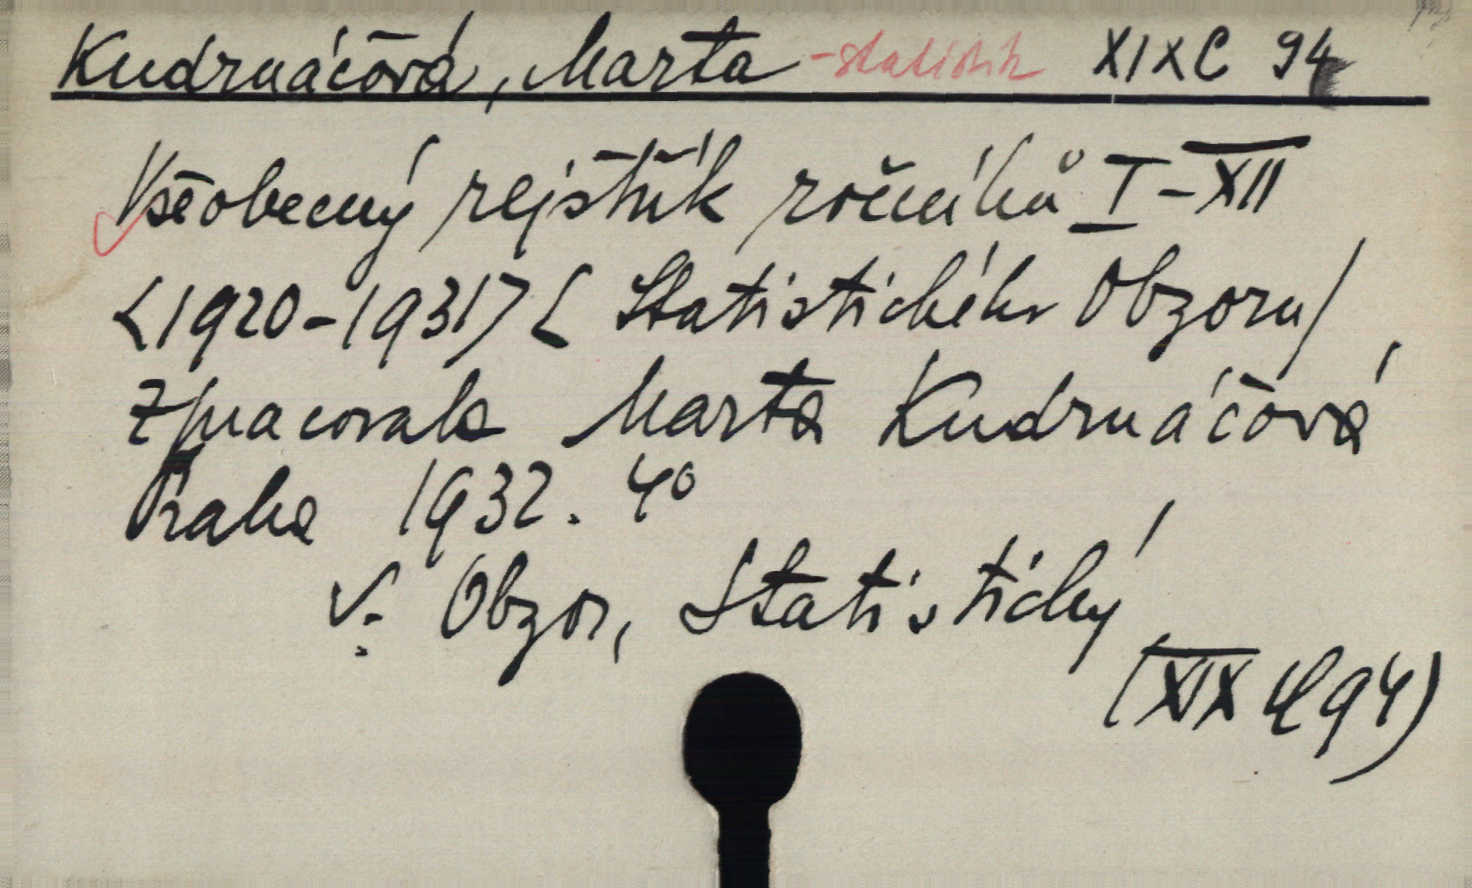 Kudrnáčová, Marta - statistik XIX C 94
Všeobecný rejstřík ročníků I-XII
<1920-1931> [Statistického Obzoru/
Zpracovala Marta Kudrnáčová
Praha 1932. 4°
V: Obzor, Statistický
(XIX C 94)